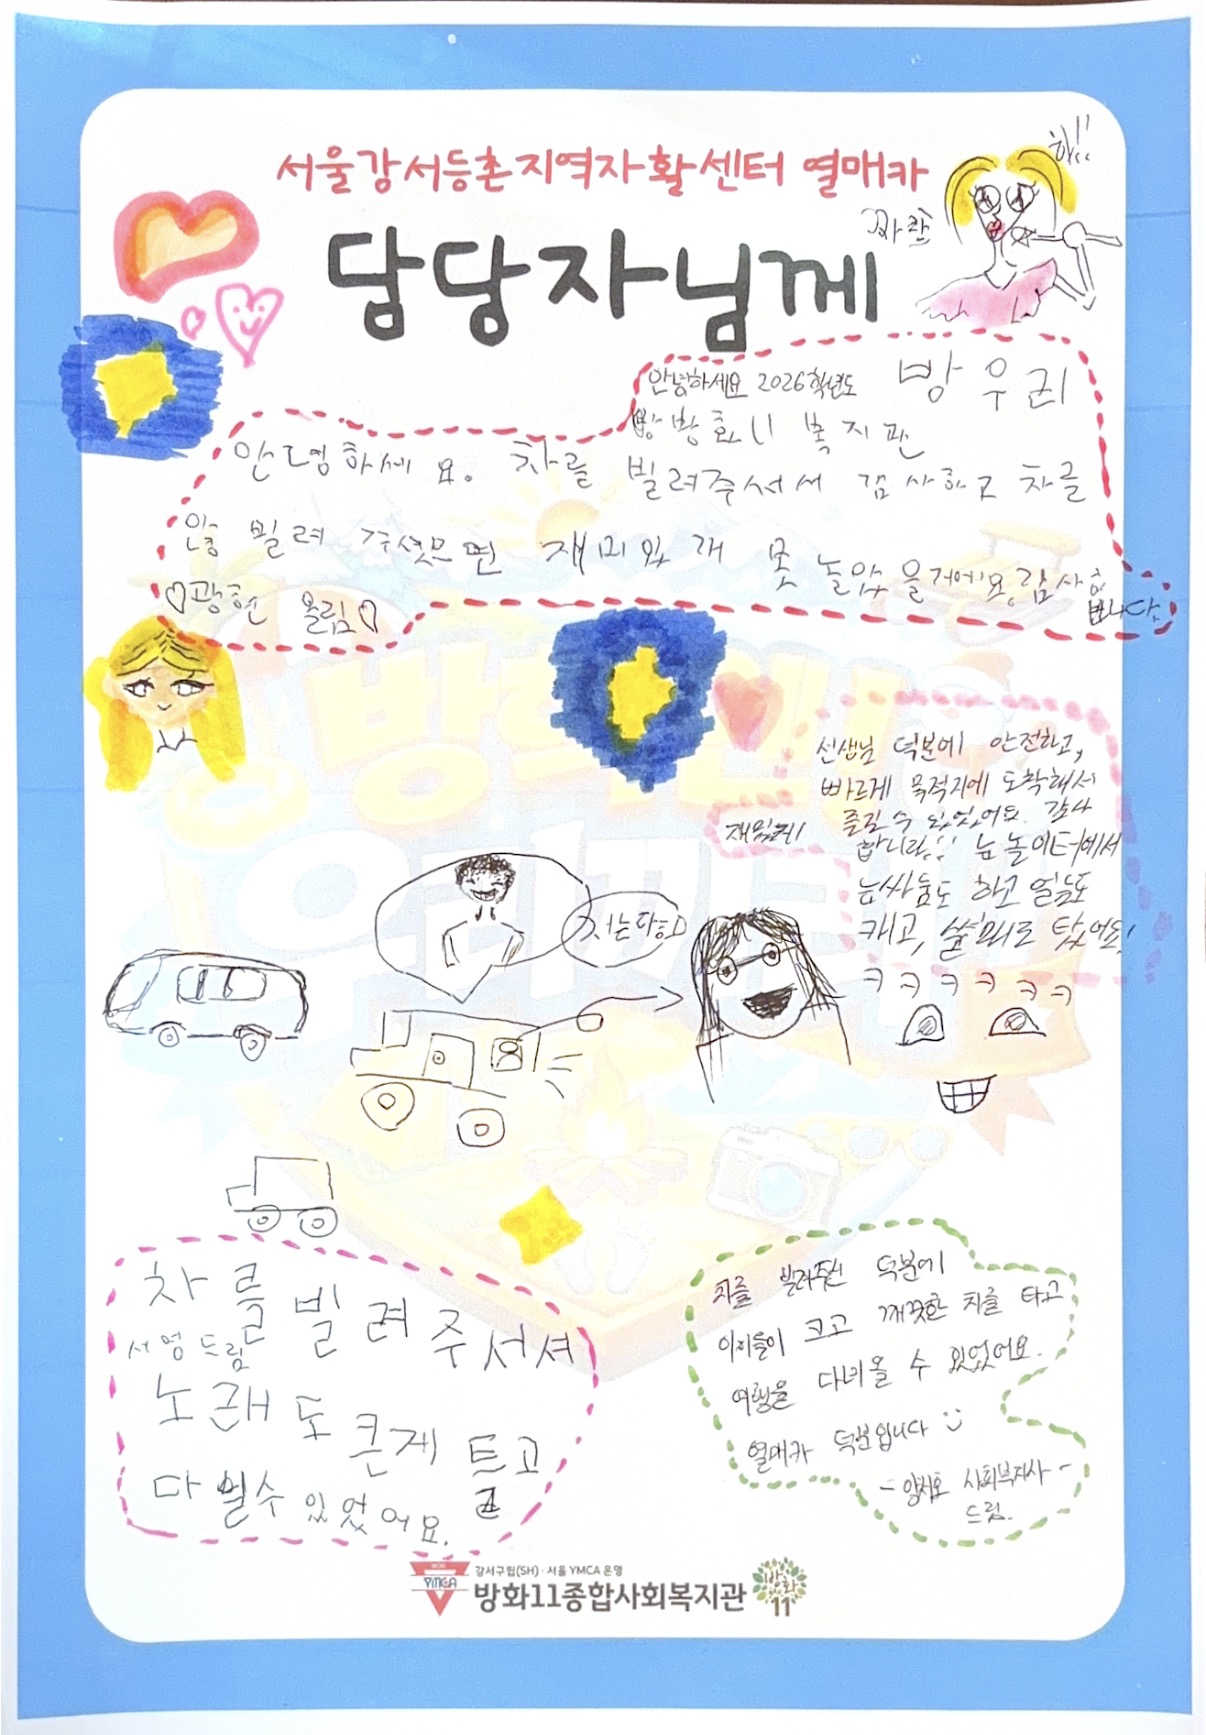 서울강서등촌지역자활센터 열매카
담당자님께
하!!
안녕하세요 2026학년도 방우리
방화11 복지관
안녕하세요. 차를 빌려주셔서 감사하고 차를
안 빌려 주셧으면 재미있개 못 놀았을거에요. 감사합니다.
♡광현 올림♡
선생님 덕분에 안전하고,
빠르게 목적지에 도착해서
즐길 수 있었어요. 감사
합니다!! 눈 놀이터에서
재밌게!
눈싸움도 하고 얼음도
캐고, 썰매도 탔어요!
ㅋㅋㅋㅋㅋㅋ
저는
차를 빌려주서셔
서영 드림
노래도 큰게 트고
다닐수 있었어요.
차를 빌려주신 덕분에
아이들이 크고 깨끗한 차를 타고
여행을 다녀올 수 있었어요.
열매카 덕분입니다
- 사회복지사 -
드림.
YMCA
강서구립(SH)·서울 YMCA 운영
방화11종합사회복지관
방화
11